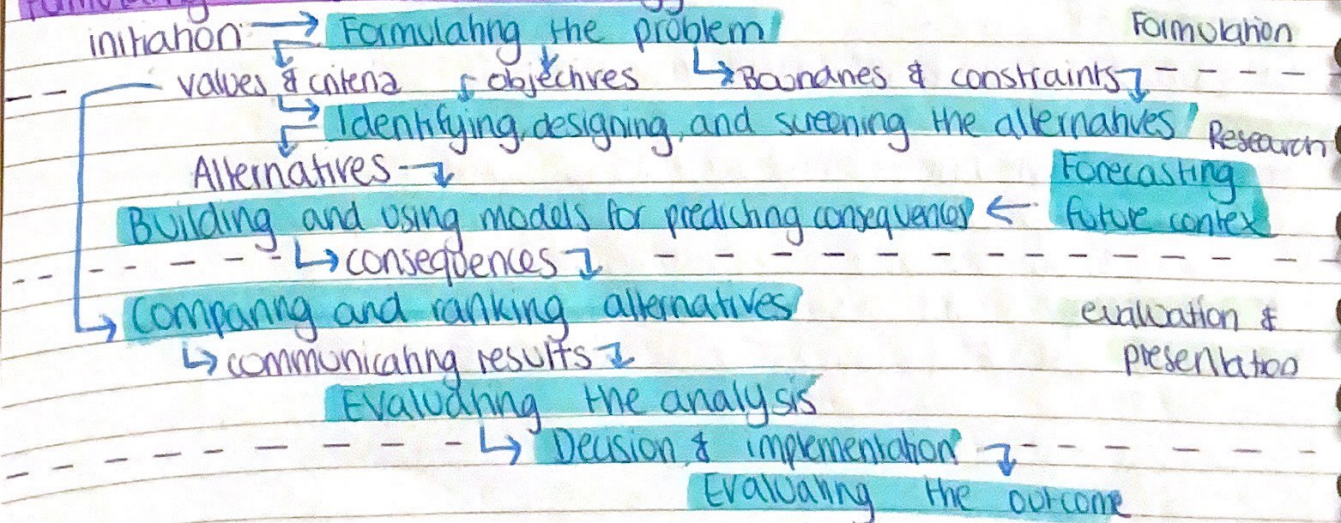 initiation → Formulating the problem Formulation
values & criteria objectives Boundaries & constraints
Identifying, designing, and screening the alternatives Research
Alternatives Forecasting
Building and using models for predicting consequences ← future contex
consequences
Comparing and ranking alternatives evaluation &
communicating results presentation
Evaluating the analysis
Decision & implementation
Evaluating the outcome